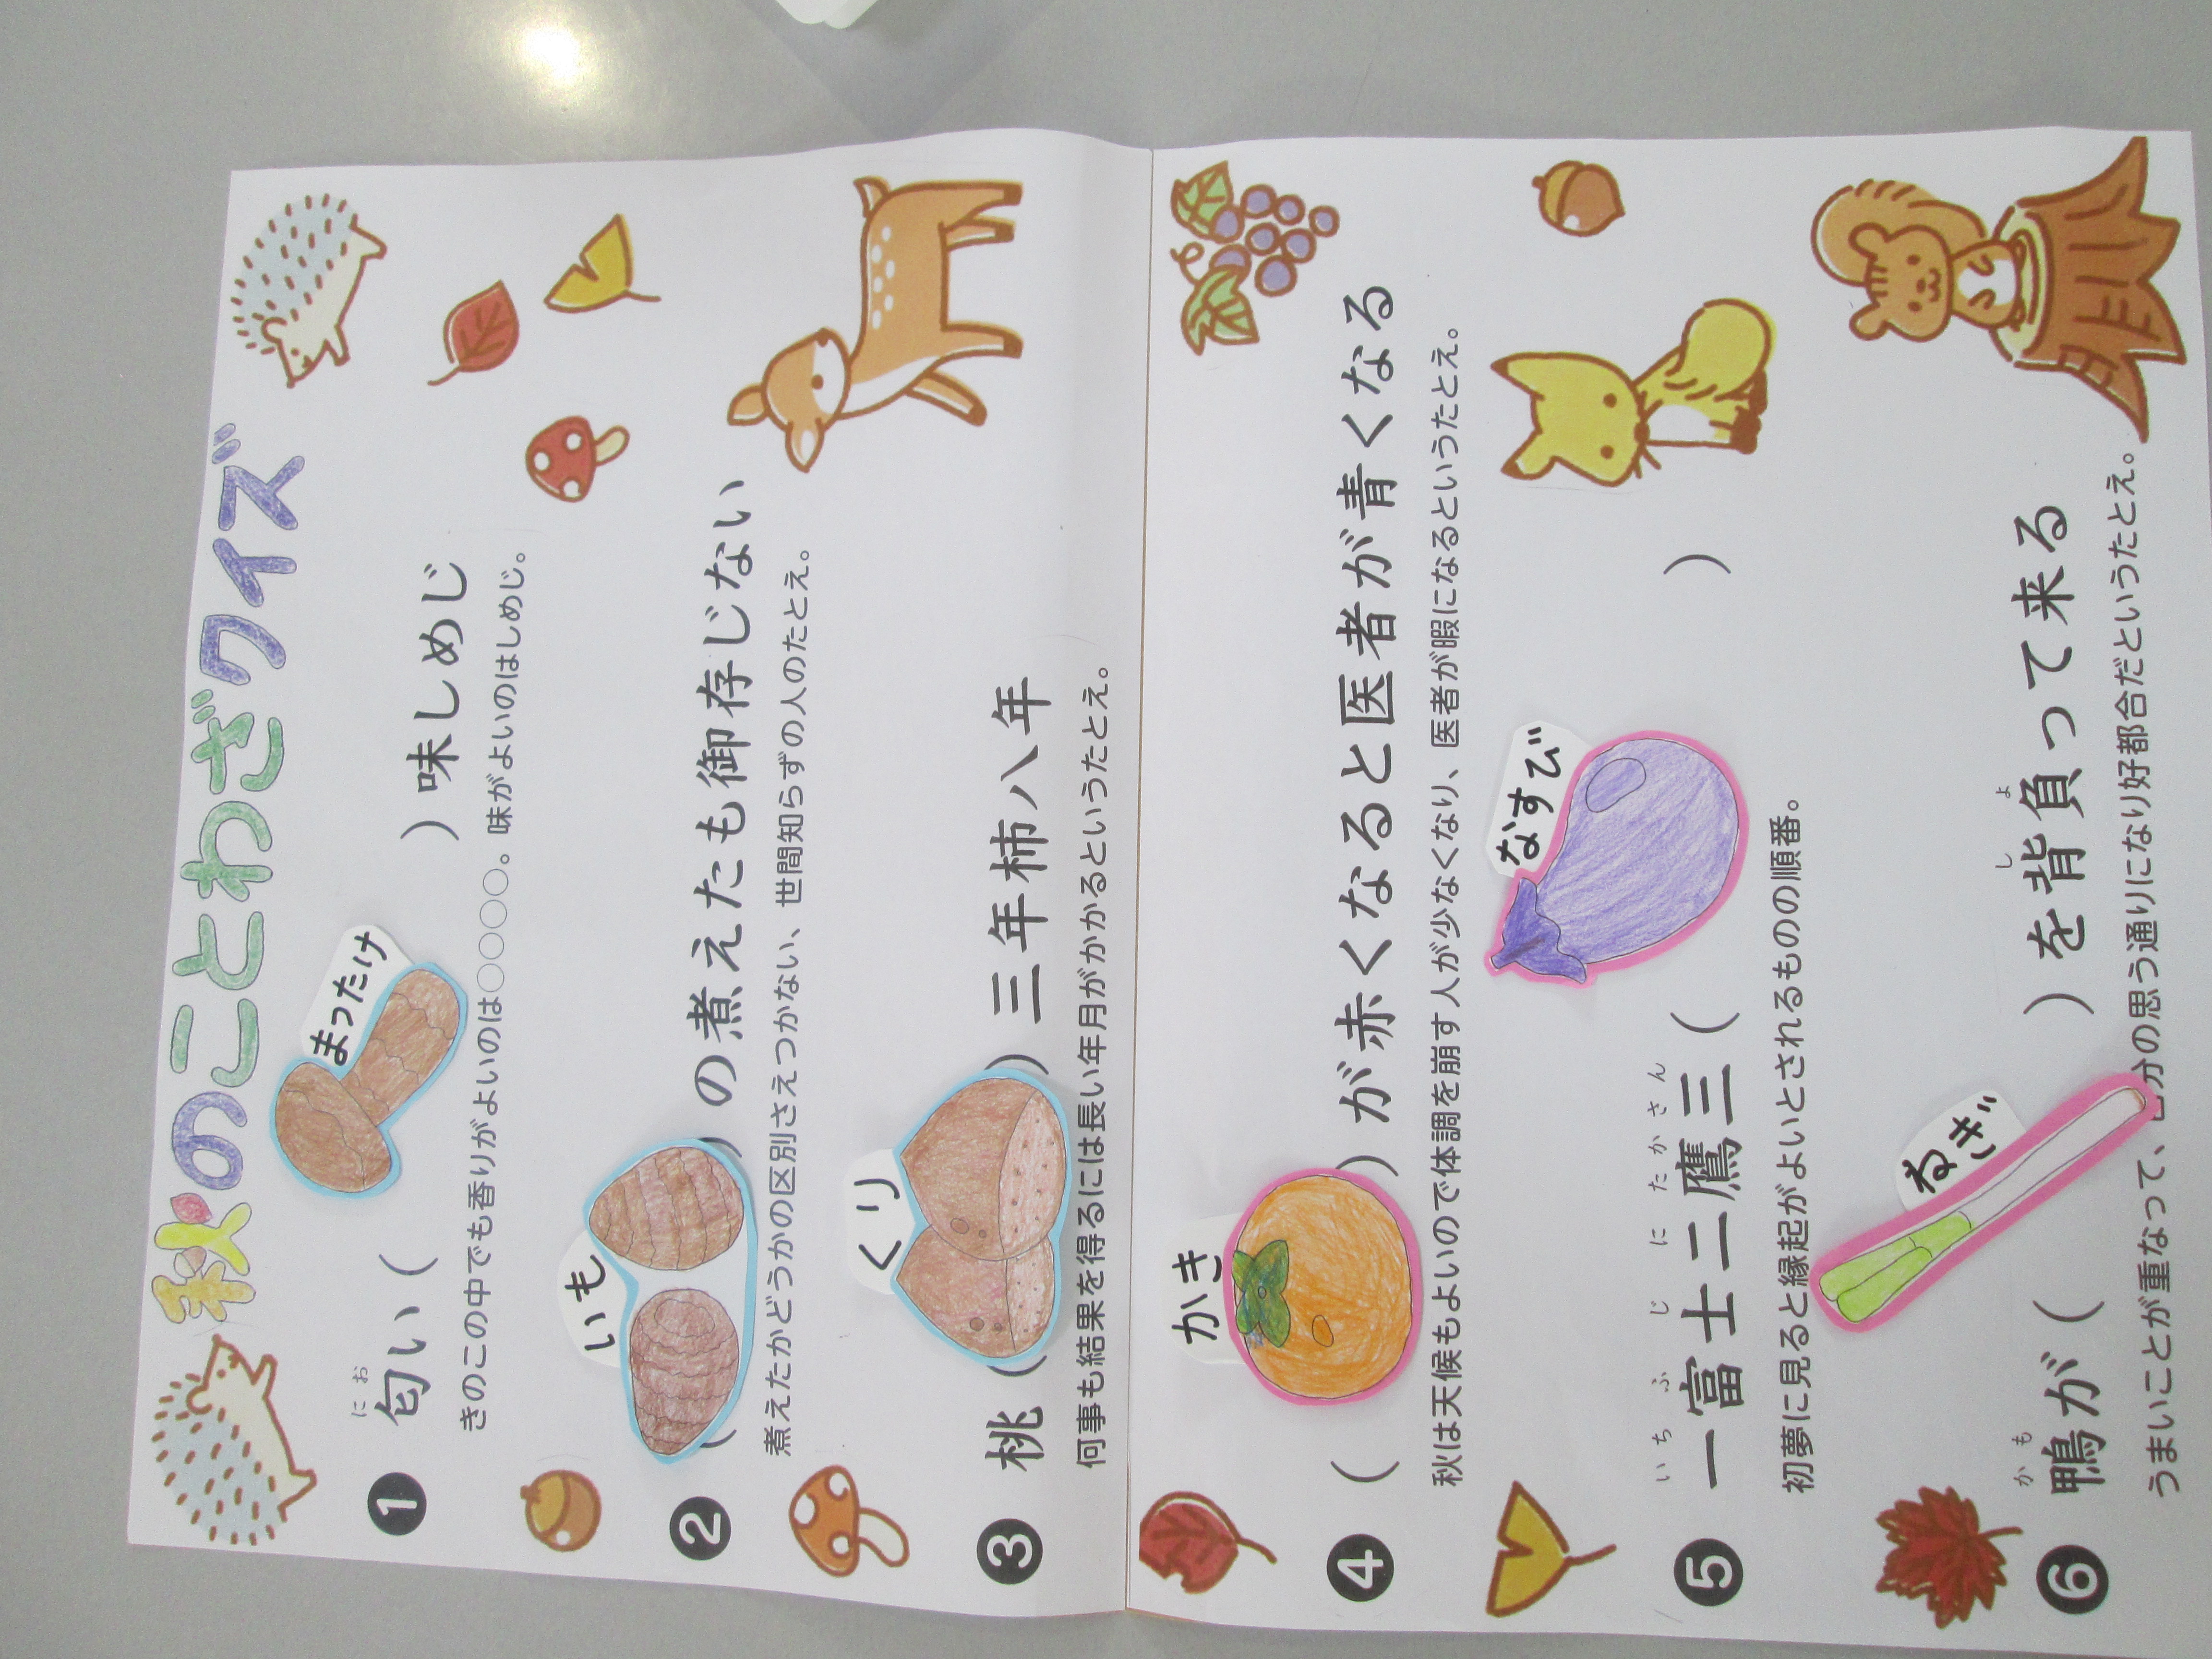 秋のことわざクイズ
まつたけ
にお
❶ 匂い（　　　）味しめじ
きのこの中でも香りがよいのは○○○○。味がよいのはしめじ。
いも
❷（　　　）の煮えたも御存じない
煮えたかどうかの区別さえつかない、世間知らずの人のたとえ。
くり
❸ 桃（　　　）三年柿八年
何事も結果を得るには長い年月がかかるというたとえ。
かき
❹（　　　）が赤くなると医者が青くなる
秋は天候もよいので体調を崩す人が少なくなり、医者が暇になるというたとえ。
なすび
いちふじにたかさん
❺ 一富士二鷹三（　　　）
初夢に見ると縁起がよいとされるものの順番。
ねぎ
かも　しょ
❻ 鴨が（　　　）を背負って来る
うまいことが重なって、自分の思う通りになり好都合だというたとえ。